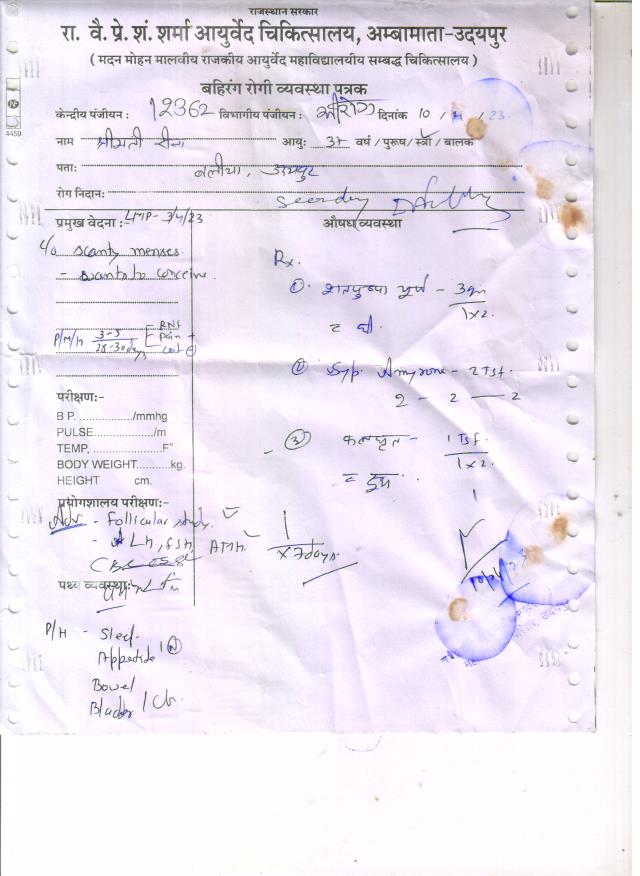 राजस्थान सरकार
रा. वै. प्रे. शं. शर्मा आयुर्वेद चिकित्सालय, अम्बामाता-उदयपुर
( मदन मोहन मालवीय राजकीय आयुर्वेद महाविद्यालयीय सम्बद्ध चिकित्सालय )
बहिरंग रोगी व्यवस्था पत्रक
केन्द्रीय पंजीयन : 12362 विभागीय पंजीयन : दिनांक 10 / / 23
4459
नाम श्रीमती आयुः 37 वर्ष / पुरूष / स्त्री / बालक
पताः उदयपुर
रोग निदानः
प्रमुख वेदना :- LMP - 3/4/23 औषध व्यवस्था
c/o scanty menses.
- wants to conceive
Rx.
① शतपुष्पा चूर्ण - 3gm
1x2
P/M/H 3-5 / 28-30 days
pain +
② Syp. - 2 Tsf.
2 - 2 - 2
परीक्षणः-
B P. ................/mmhg
PULSE................/m
TEMP, ................F°
BODY WEIGHT..........kg.
HEIGHT cm.
③ फलघृत - 1 Tsf.
1x2.
प्रयोगशालय परीक्षणः-
Adv - Follicular study.
- LH, FSH, AMH.
x 7 days.
पथ्य व्यवस्थाः
P/H - Sleep
Appetide / N
Bowel
Blader